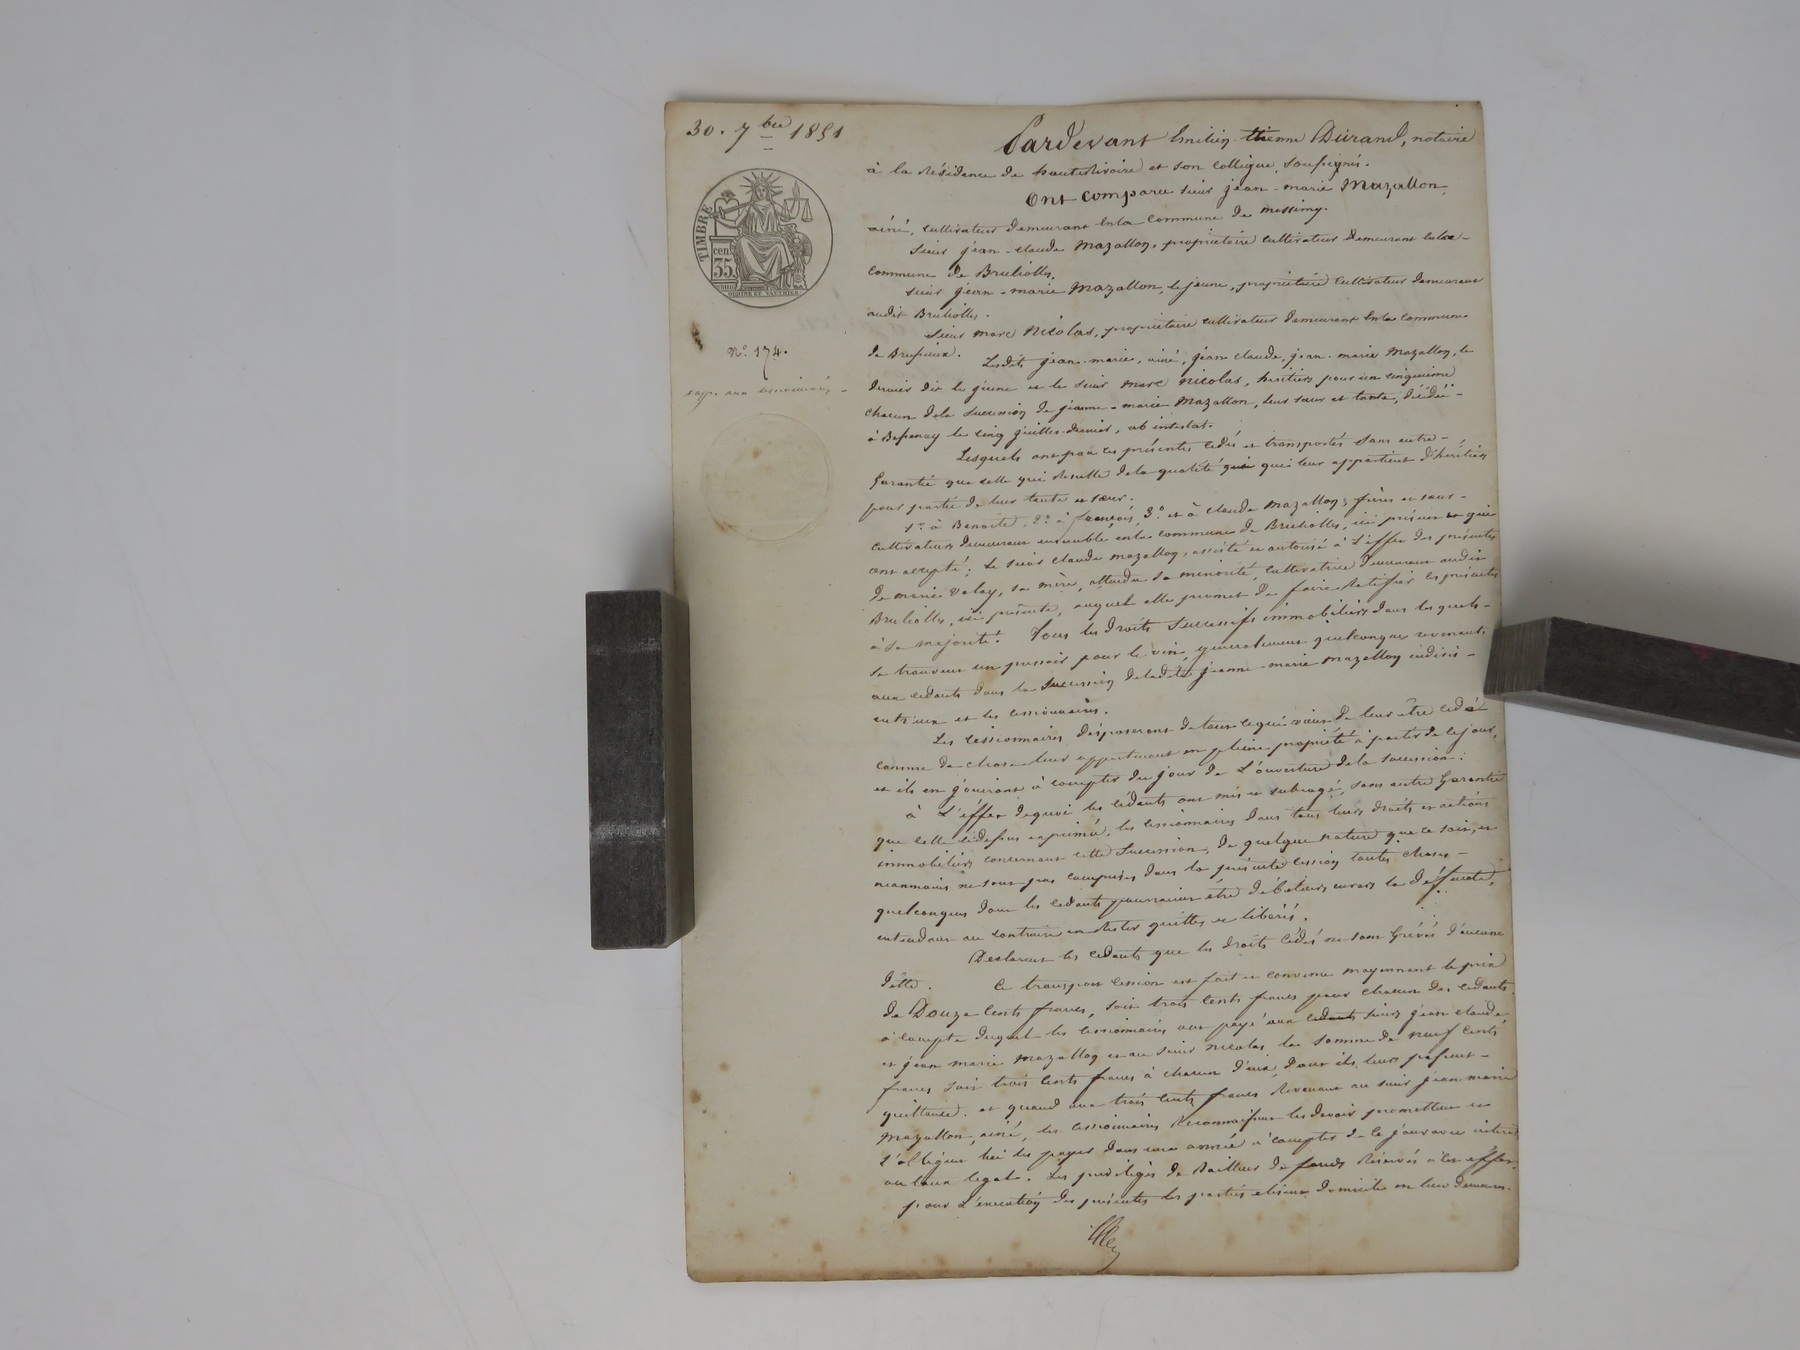 30. 7bre 1851
TIMBRE
cen.
35
OUDINE ET VAUTHIER
N°. 174.
exp. aux cessionnaires
Pardevant Emilien Etienne Durand, notaire
à la Résidence de hauterivoire et son collègue, soussignés.
Ont comparu sieur jean-marie Mazallon,
ainé, cultivateur demeurant en la commune de messimy.
Sieur jean-claude Mazallon, propriétaire cultivateur demeurant en la
commune de Brullioles,
sieur jean-marie Mazallon, le jeune, propriétaire cultivateur demeurant
audit Brullioles.
Sieur marc Nicolas, propriétaire cultivateur demeurant en la commune
de Brussieux. Lesdits jean-marie, ainé, jean claude, jean-marie Mazallon, le
dernier dit le jeune et le sieur marc nicolas, héritiers pour un cinquieme
chacun de la succession de jeanne-marie Mazallon, leur sœur et tante, décédée
à Bessenay le cinq juillet dernier, ab intestat.
Lesquels ont par ces présentes cédés et transportés sans autre
Garantie que celle qui résulte de la qualité qui leur appartient d'héritiers
pour partie de leur tante et sœur.
1° à Benoite, 2° à françois, 3° et à claude Mazallon, frères et sœur
cultivateurs demeurant ensemble en la commune de Brullioles, ici présents et qui
ont accepté; le sieur claude mazallon, assisté et autorisé à l'effet des présentes
de marie Velay, sa mère, attendu sa minorité, cultivatrice demeurant audit
Brullioles, ici présente, auquel elle promet de faire Ratifier les présentes
à sa majorité. Tous les droits successifs immobiliers dans lesquels
se trouvent un pressoir pour le vin, generalement quelconques revenants
aux cédants dans la succession de ladite jeanne-marie mazallon indivis
entr'eux et les cessionnaires.
Les cessionnaires disposeront de tout ce qui vient de leur être cedé
comme de chose leur appartenant en pleine propriété à partir de ce jour,
et ils en jouiront à compter du jour de l'ouverture de la succession.
à l'effet de quoi les cédants ont mis et subrogé, sans autre Garantie
que celle cidessus exprimée, les cessionnaires dans tous leurs droits et actions
immobiliers concernant cette succession, de quelque nature que ce soit, et
néanmoins ne sont pas comprises dans la présente cession toutes choses
quelconques dont les cédants pourraient être débiteurs envers la deffunte,
entendant au contraire en rester quittes et libérés.
Déclarent les cédants que les droits cédés ne sont Grévés d'aucune
dette. Ce transport cession est fait et convenu moyennant le prix
de Douze cents francs, soit trois cents francs pour chacun des cédants
à compte duquel les cessionnaires ont payé aux sieurs jean claude,
et jean marie Mazallon et au sieur nicolas la somme de neuf cents
francs soit trois cents francs à chacun d'eux, dont ils leurs passent
quittance. et quand aux trois cents francs Revenant au sieur jean marie
Mazallon, ainé, les cessionnaires Reconnaissent les devoir promettent et
s'obligent lui les payer dans une année à compter de ce jour avec intérêt
au taux légal. Les privilèges de Bailleur de fonds Réservés à cet effet.
pour l'exécution des présentes les parties élisent domicile en leur demeure.